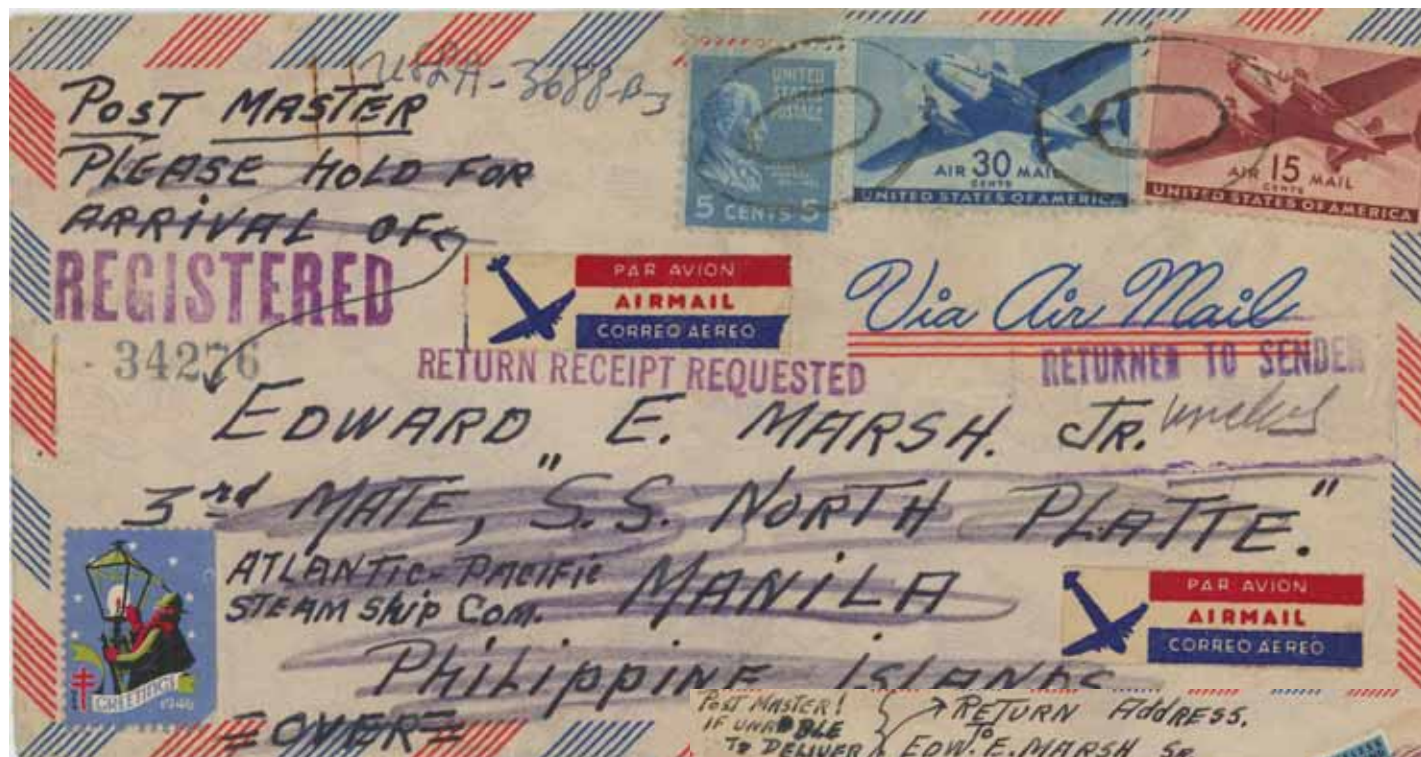 POST MASTER
PLEASE HOLD FOR
ARRIVAL OF
UNITED
STATES
POSTAGE
5 CENTS 5
AIR 30 MAIL
CENTS
UNITED STATES OF AMERICA
AIR 15 MAIL
CENTS
UNITED STATES OF AMERICA
REGISTERED
34276
PAR AVION
AIRMAIL
CORREO AEREO
Via Air Mail
RETURN RECEIPT REQUESTED
RETURNED TO SENDER
EDWARD E. MARSH. JR.
3rd MATE, "S.S. NORTH PLATTE."
ATLANTIC-PACIFIC MANILA
STEAM SHIP COM.
PHILIPPINE ISLANDS
PAR AVION
AIRMAIL
CORREO AEREO
GREETINGS
1946
=OVER=
POST MASTER!
IF UNABLE
TO DELIVER
RETURN ADDRESS.
TO
EDW. E. MARSH SR